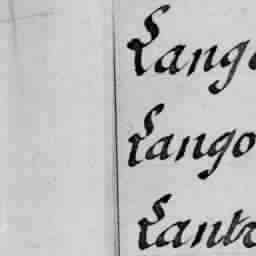 Lang
Lango
Lantr